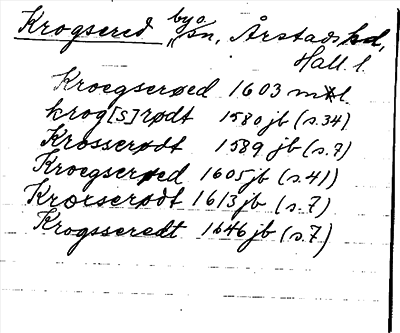 Krogsered by o. sn, Årstads hd,
Hall. l.
Kroegserøed 1603 mxl.
krog[s]rødt 1580 jb (s.34)
Krosserødt 1589 jb (s.7)
Kroegserøed 1605 jb (s.41)
Kroeserødt 1613 jb (s.7)
Krogsseredt 1646 jb (s.7)